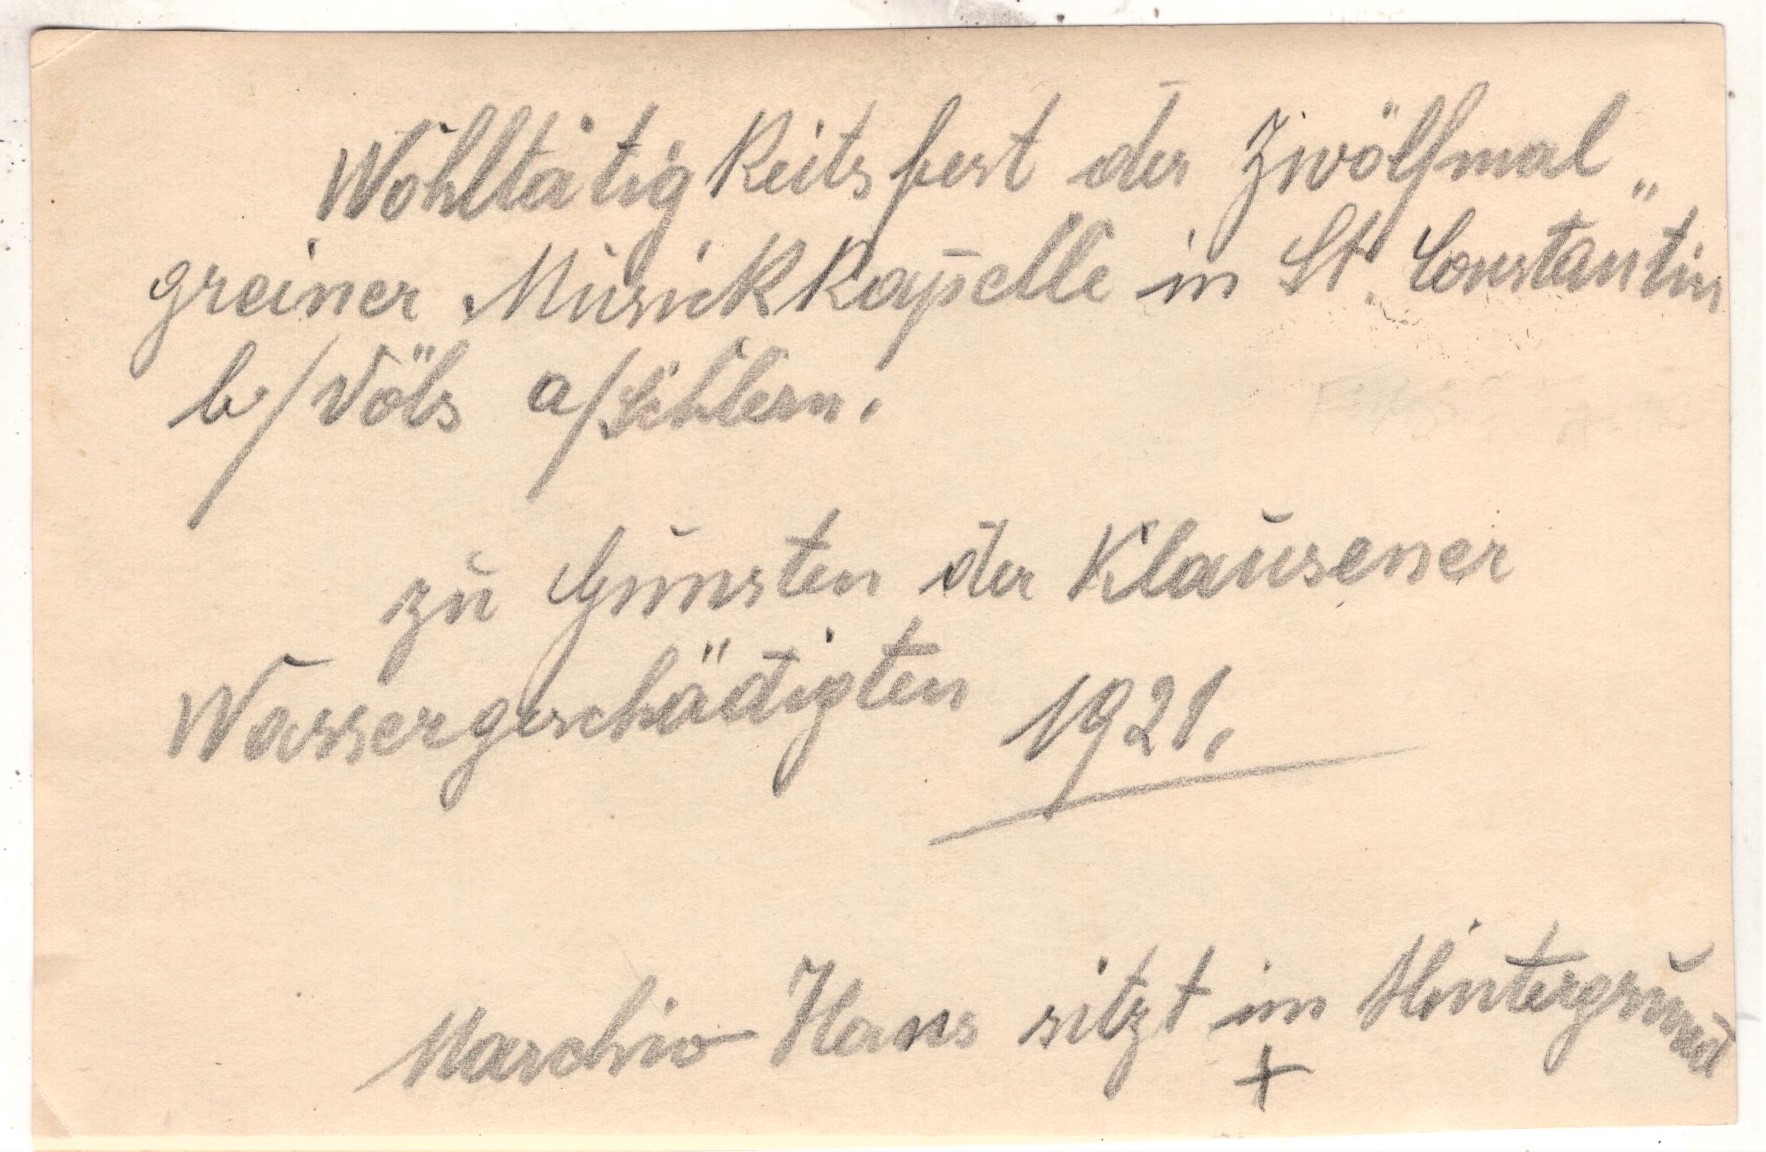 Wohltätigkeitsfest der Zwölfmal„
greiner Musickkapelle in St. Constantin
b/Völs a/Schlern.
zu Gunsten der Klausener
Wassergeschädigten 1921.
Marchio Hans sitzt im Hintergrund
+